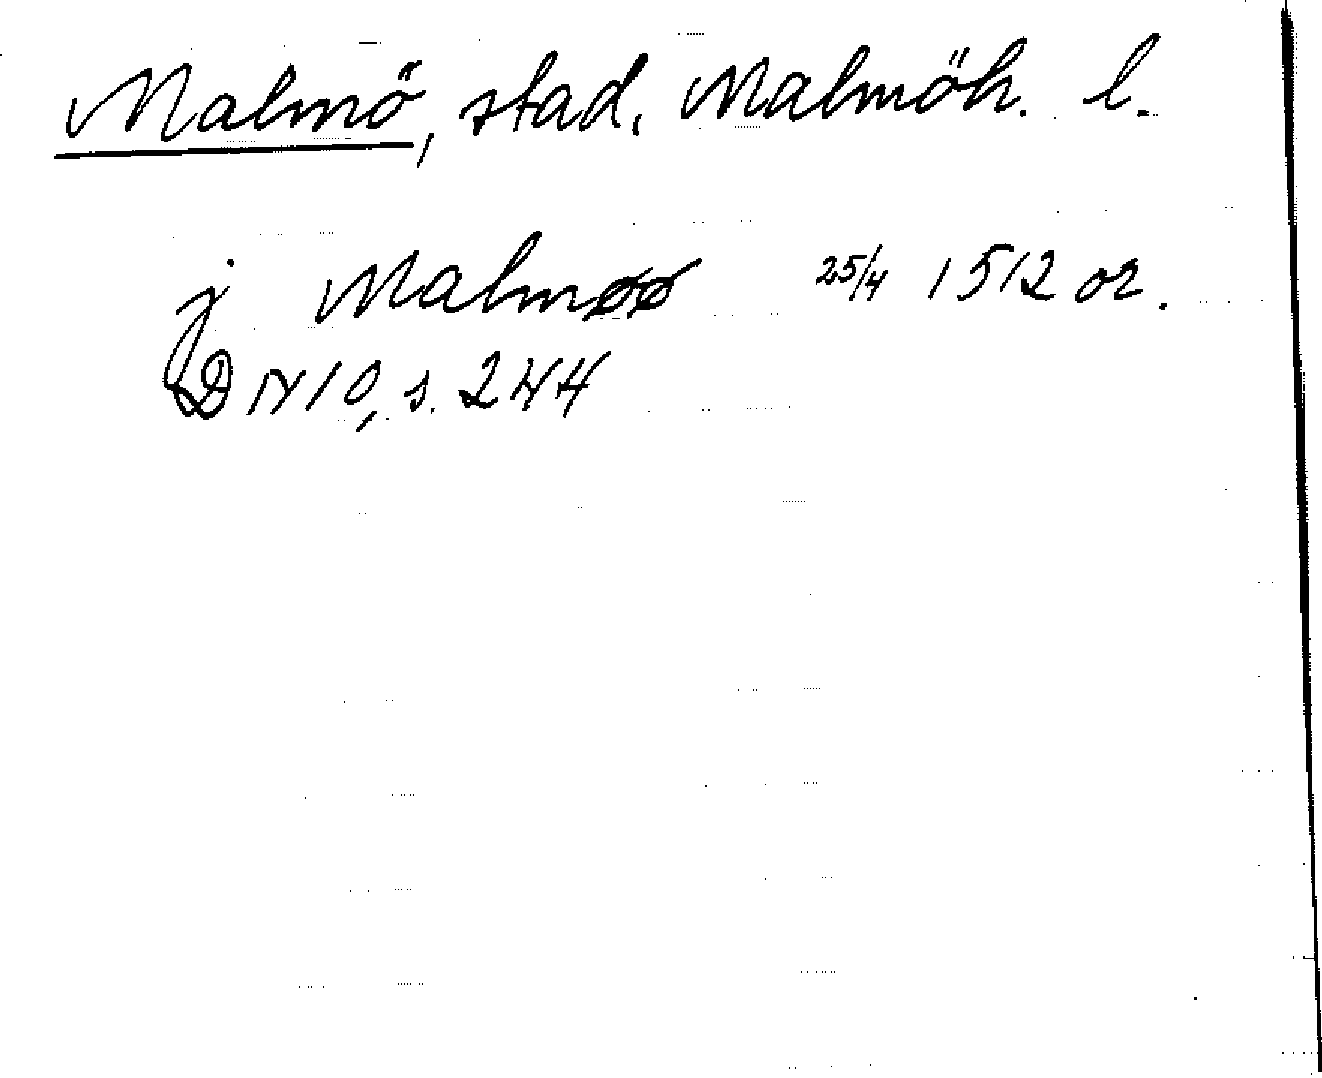 Malmö, stad, Malmöh. l.
j Malmøø 25/4 1512 or.
DN 10, s. 244